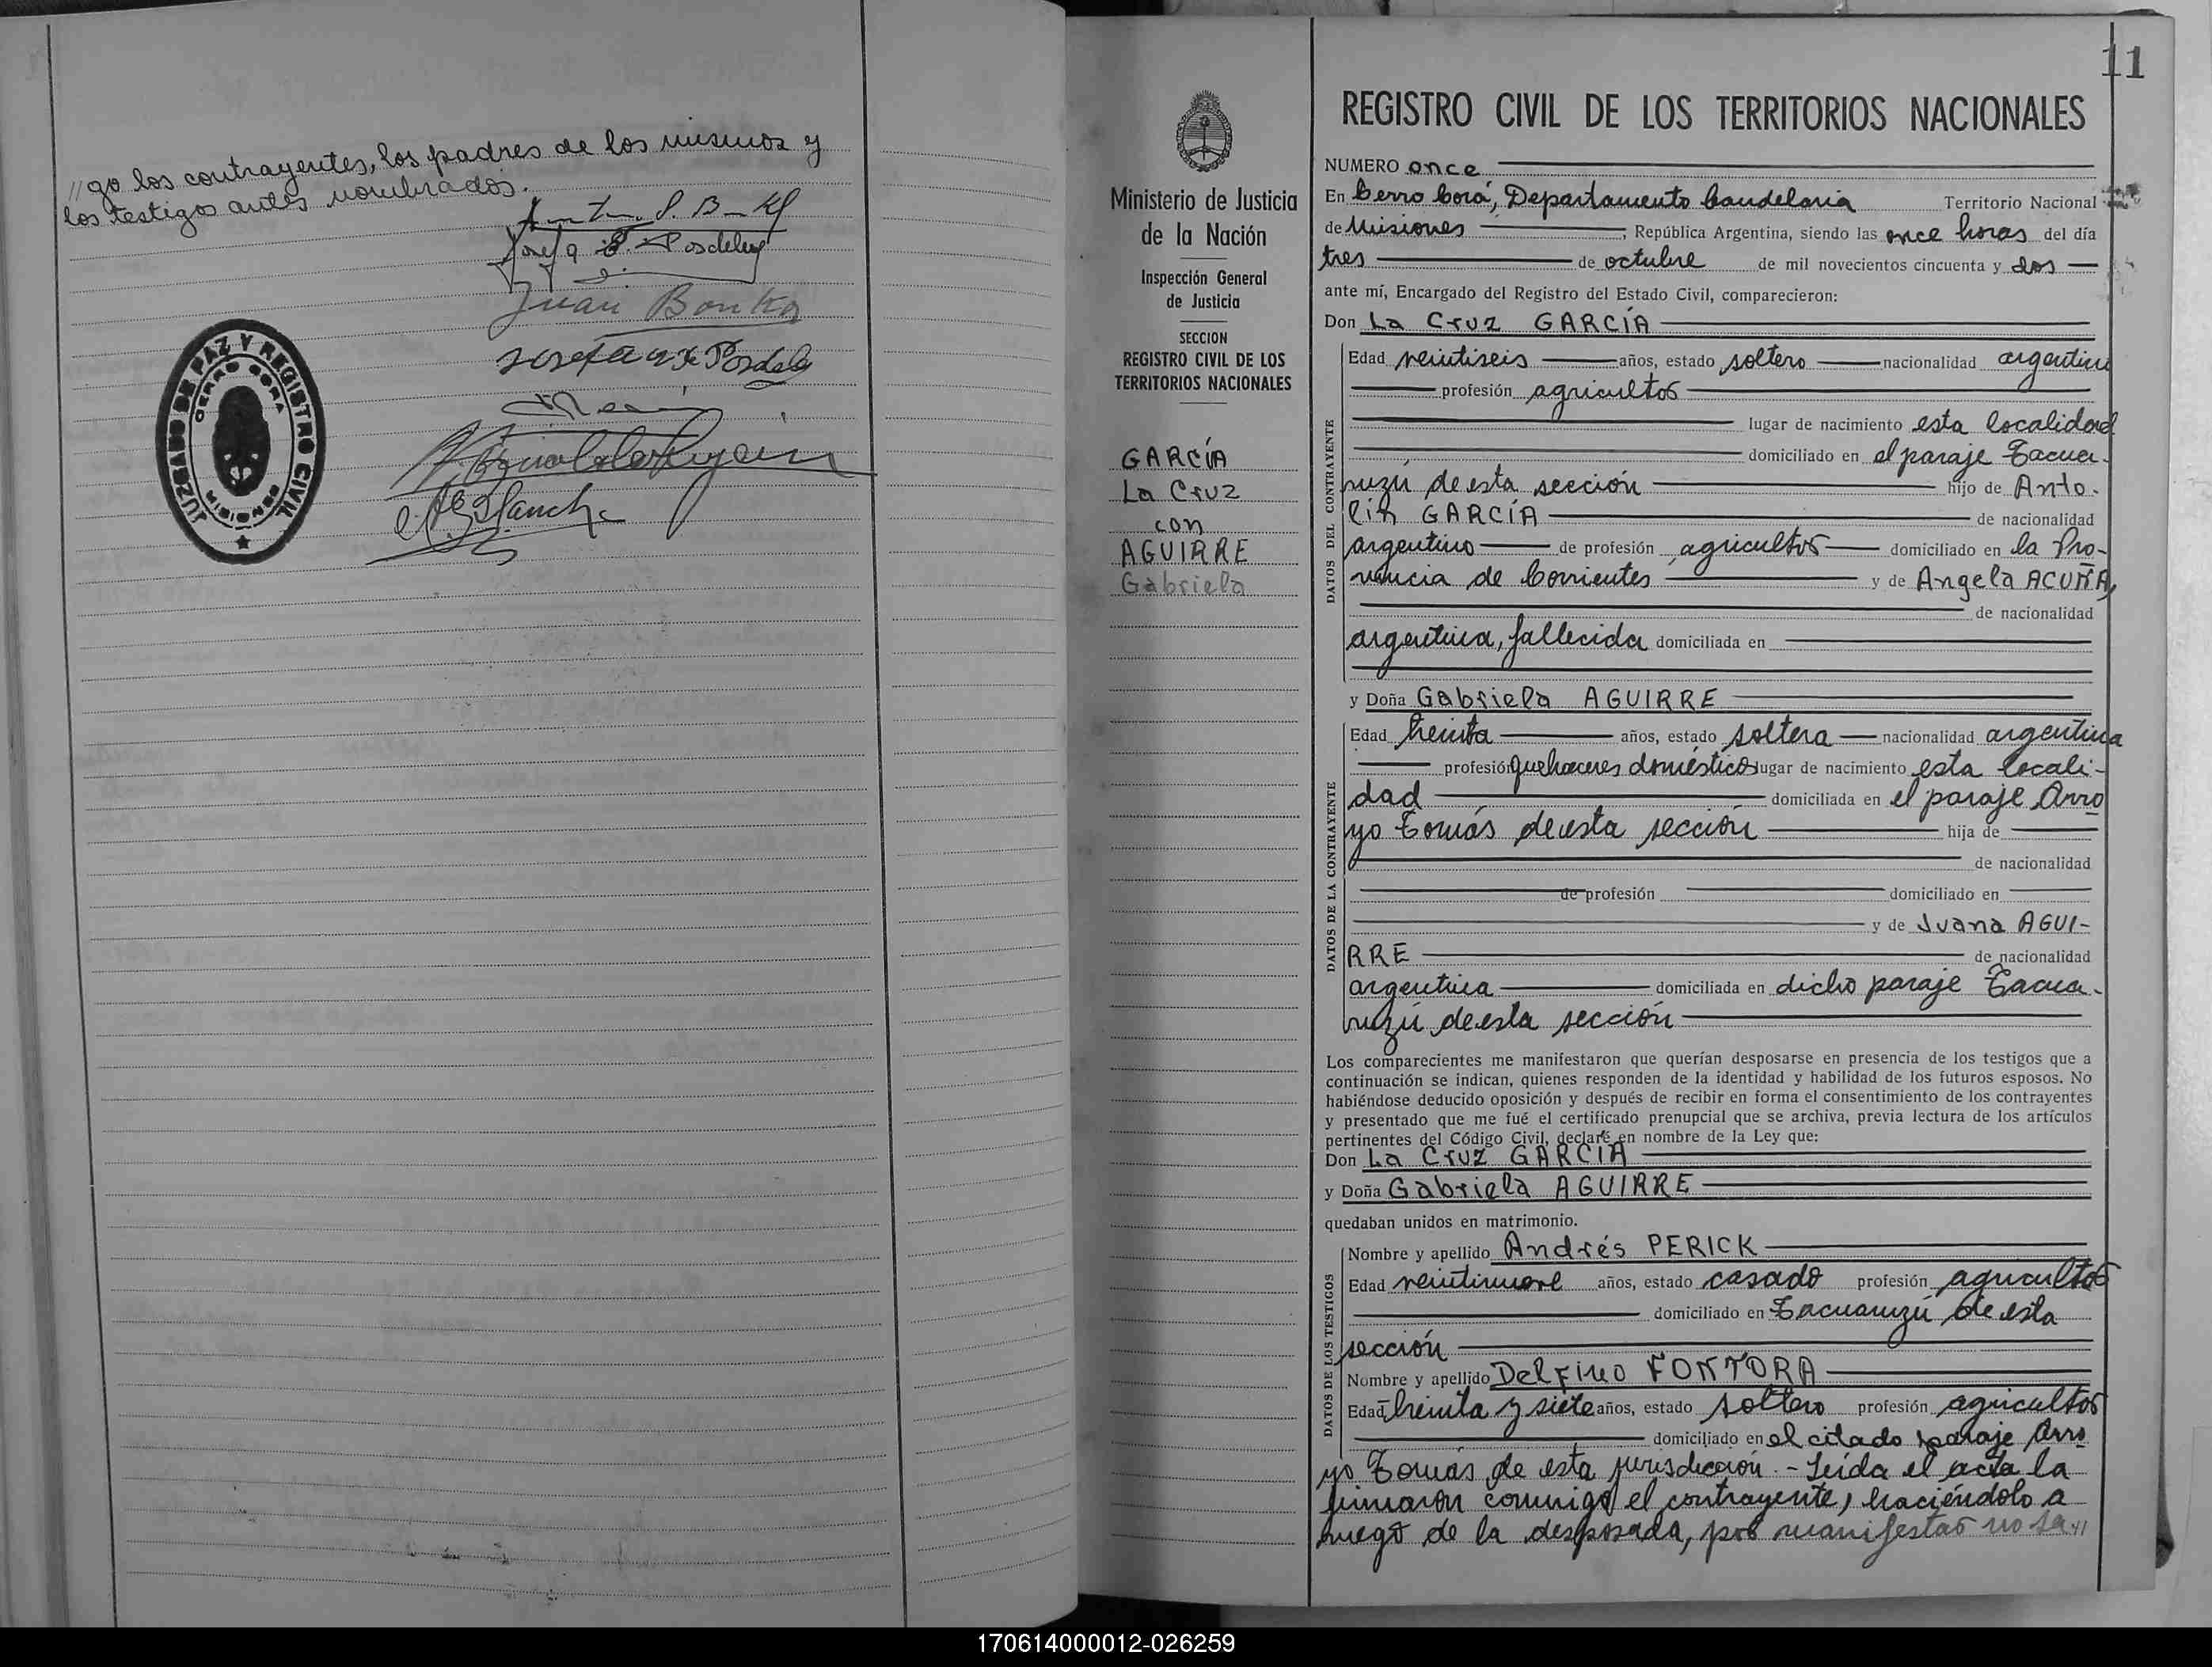 //go los contrayentes, los padres de los mismos y
los testigos antes nombrados.
Juan Bonka
JUZGADO DE PAZ Y REGISTRO CIVIL
CERRO CORA
MISIONES
11
REGISTRO CIVIL DE LOS TERRITORIOS NACIONALES
Ministerio de Justicia
de la Nación
Inspección General
de Justicia
SECCION
REGISTRO CIVIL DE LOS
TERRITORIOS NACIONALES
GARCÍA
La Cruz
con
AGUIRRE
Gabriela
NUMERO once
En Cerro Corá, Departamento Candelaria Territorio Nacional
de Misiones, República Argentina, siendo las once horas del día
tres de octubre de mil novecientos cincuenta y dos
ante mí, Encargado del Registro del Estado Civil, comparecieron:
Don La Cruz GARCÍA
DATOS DEL CONTRAYENTE
Edad veintiseis años, estado soltero nacionalidad argentina
profesión agricultor
lugar de nacimiento esta localidad
domiciliado en el paraje Tacua-
ruzú de esta sección hijo de Anto-
lin GARCÍA de nacionalidad
argentino de profesión agricultor domiciliado en la Pro-
vincia de Corrientes y de Angela ACUÑA,
de nacionalidad
argentina, fallecida domiciliada en
y Doña Gabriela AGUIRRE
DATOS DE LA CONTRAYENTE
Edad treinta años, estado soltera nacionalidad argentina
profesión quehaceres domésticos lugar de nacimiento esta locali-
dad domiciliada en el paraje Arro
yo Tomás de esta sección hija de
de nacionalidad
de profesión domiciliado en
y de Juana AGUI-
RRE de nacionalidad
argentina domiciliada en dicho paraje Tacua-
ruzú de esta sección
Los comparecientes me manifestaron que querían desposarse en presencia de los testigos que a
continuación se indican, quienes responden de la identidad y habilidad de los futuros esposos. No
habiéndose deducido oposición y después de recibir en forma el consentimiento de los contrayentes
y presentado que me fué el certificado prenupcial que se archiva, previa lectura de los artículos
pertinentes del Código Civil, declaré en nombre de la Ley que:
Don La Cruz GARCÍA
y Doña Gabriela AGUIRRE
quedaban unidos en matrimonio.
DATOS DE LOS TESTIGOS
Nombre y apellido Andrés PERICK
Edad veintinueve años, estado casado profesión agricultor
domiciliado en Tacuaruzú de esta
sección
Nombre y apellido Delfino FONTORA
Edad treinta y siete años, estado soltero profesión agricultor
domiciliado en el citado paraje Arro
yo Tomás de esta jurisdicción.- Leída el acta la
firmaron conmigo el contrayente, haciéndolo a
ruego de la desposada, por manifestar no sa//
170614000012-026259